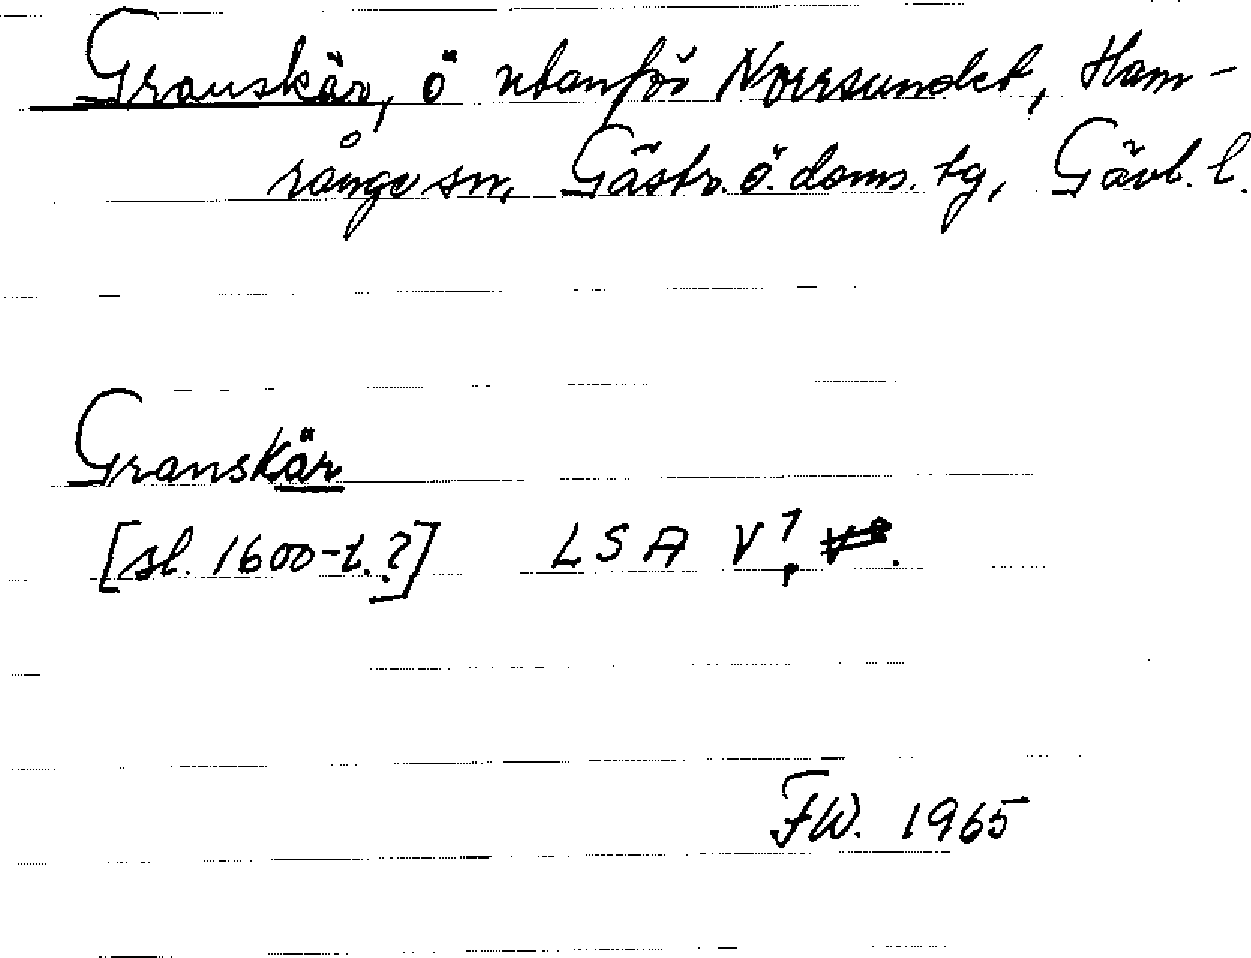 Granskär, ö utanför Norrsundet, Ham-
rånge sn, Gästr. ö. doms. tg, Gävl. l.
Granskär
[sl. 1600-t.?] LSA V 7
FW. 1965